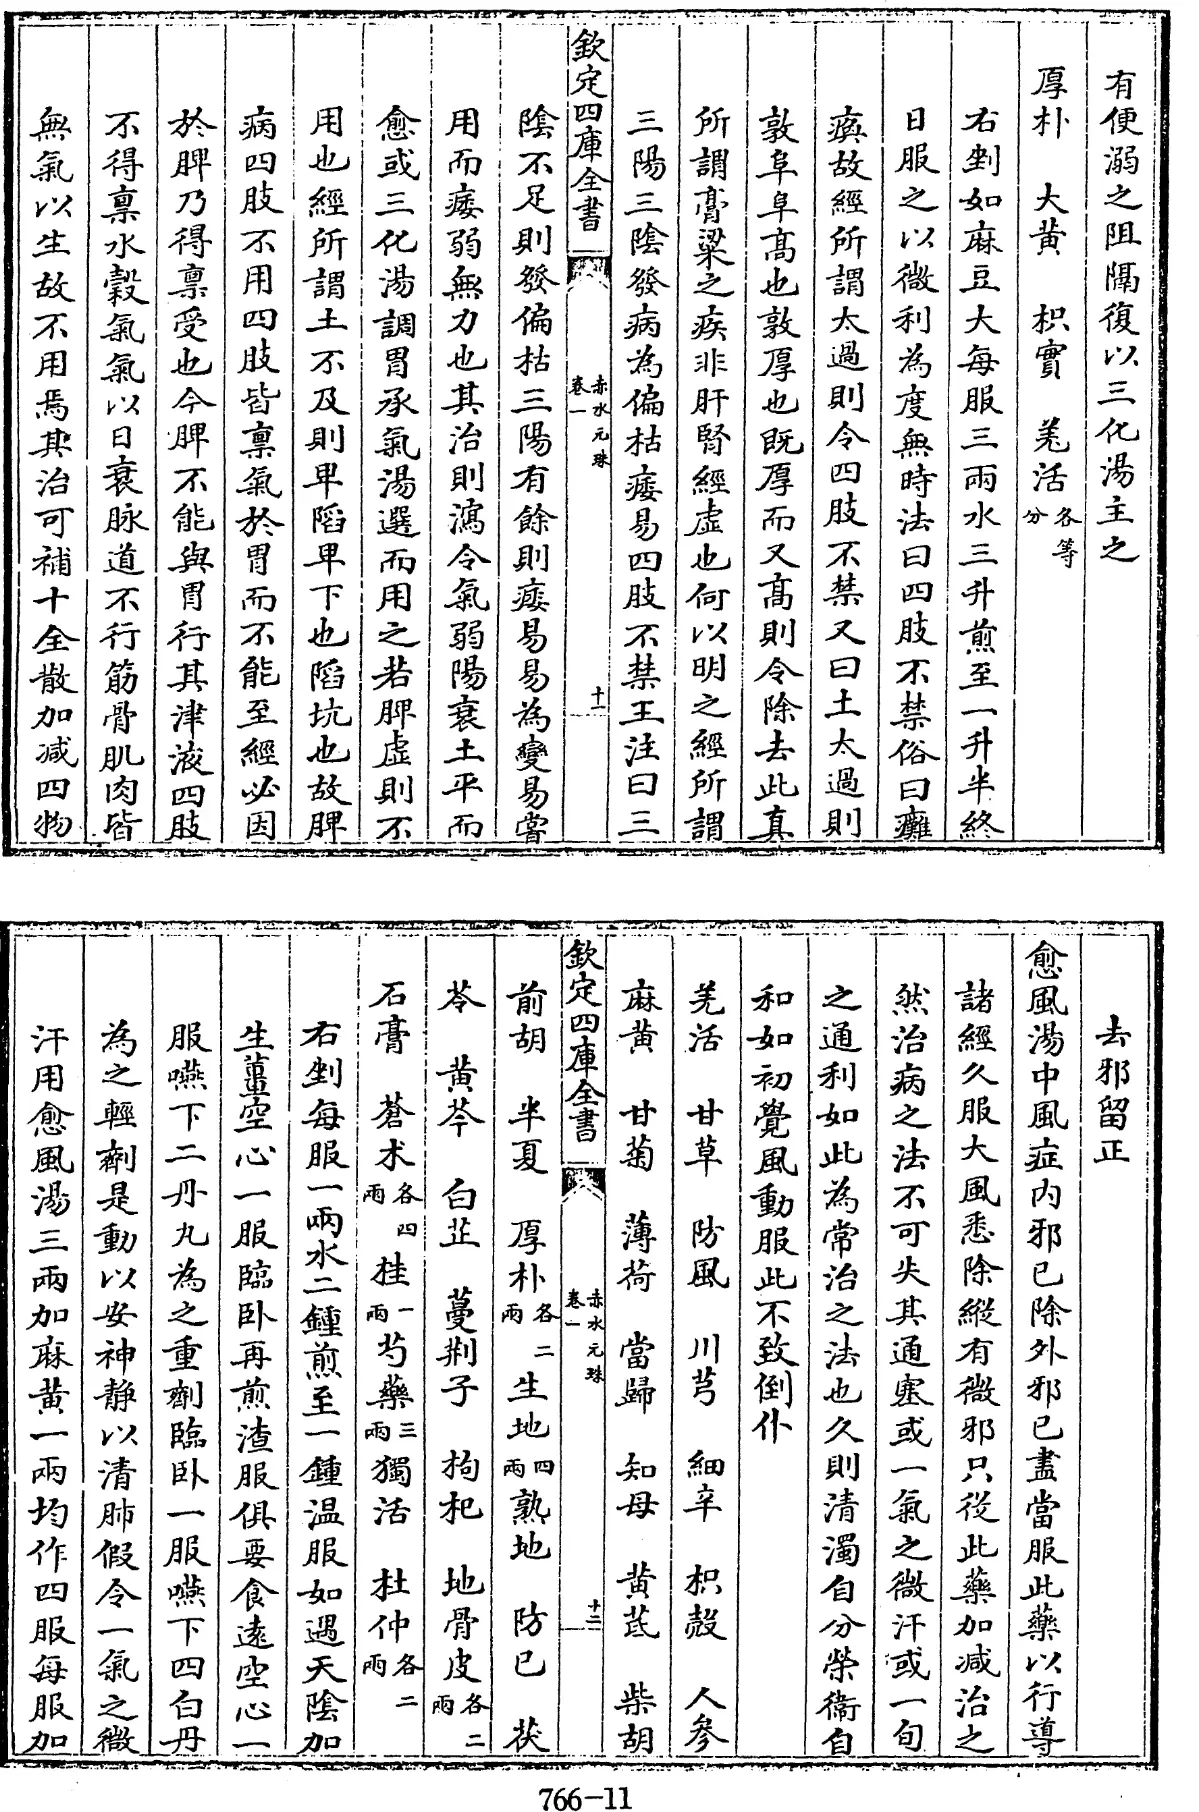 有便溺之阻隔復以三化湯主之
厚朴　大黄　枳實　羌活各等分
右剉如麻豆大每服三兩水三升煎至一升半終
日服之以微利為度無時法曰四肢不禁俗曰癱
瘓故經所謂太過則令四肢不禁又曰土太過則
敦阜阜髙也敦厚也既厚而又髙則令除去此真
所謂膏粱之疾非肝腎經虛也何以明之經所謂
三陽三陰發病為偏枯痿易四肢不禁王注曰三
欽定四庫全書
赤水元珠
卷一
十一
陰不足則發偏枯三陽有餘則痿易易為變易嘗
用而痿弱無力也其治則瀉令氣弱陽衰土平而
愈或三化湯調胃承氣湯選而用之若脾虛則不
用也經所謂土不及則卑陷卑下也陷坑也故脾
病四肢不用四肢皆禀氣於胃而不能至經必因
於脾乃得禀受也今脾不能與胃行其津液四肢
不得禀水穀氣氣以日衰脉道不行筋骨肌肉皆
無氣以生故不用焉其治可補十全散加減四物
去邪留正
愈風湯中風症内邪已除外邪已盡當服此藥以行導
諸經久服大風悉除縱有微邪只從此藥加減治之
然治病之法不可失其通塞或一氣之微汗或一旬
之通利如此為常治之法也久則清濁自分榮衞自
和如初覺風動服此不致倒仆
羌活　甘草　防風　川芎　細辛　枳殻　人參
麻黄　甘菊　薄荷　當歸　知母　黄芪　柴胡
欽定四庫全書
赤水元珠
卷一
十二
前胡　半夏　厚朴各二兩　生地四兩　熟地　防已　茯
苓　黄芩　白芷　蔓荆子　枸杞　地骨皮各二兩
石膏　蒼术各四兩　桂一兩　芍藥三兩　獨活　杜仲各二兩
右剉每服一兩水二鍾煎至一鍾温服如遇天陰加
生薑空心一服臨卧再煎渣服俱要食遠空心一
服嚥下二丹丸為之重劑臨卧一服嚥下四白丹
為之輕劑是動以安神静以清肺假令一氣之微
汗用愈風湯三兩加麻黄一兩均作四服每服加
766-11